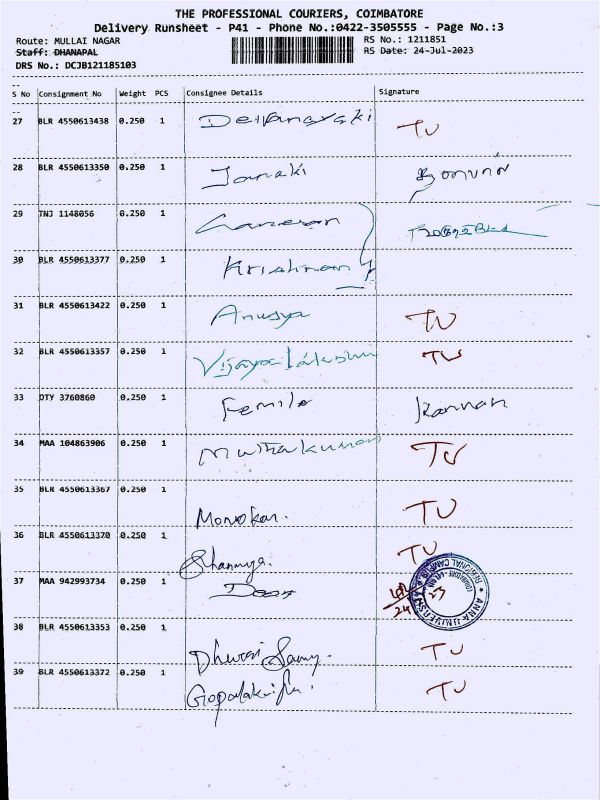 THE PROFESSIONAL COURIERS, COIMBATORE
Delivery Runsheet - P41 - Phone No.:0422-3505555 - Page No.:3
Route: MULLAI NAGAR RS No.: 1211851
Staff: DHANAPAL RS Date: 24-Jul-2023
DRS No.: DCJB121185103
S No Consignment No Weight PCS Consignee Details Signature
27 BLR 4550613438 0.250 1 Deivanayaki TV
28 BLR 4550613350 0.250 1 Janaki
29 TNJ 1148056 0.250 1 Ganesan
30 BLR 4550613377 0.250 1 Krishnan
31 BLR 4550613422 0.250 1 Anusya TV
32 BLR 4550613357 0.250 1 Vijaya lakshmi TV
33 DTY 3760860 0.250 1 Femila Kannan
34 MAA 104863906 0.250 1 Muthukumar TV
35 BLR 4550613367 0.250 1 Manokar. TV
36 BLR 4550613370 0.250 1 Shanmuga. TV
37 MAA 942993734 0.250 1 Dean
ANNA UNIVERSITY REGIONAL CAMPUS
38 BLR 4550613353 0.250 1 Dhurai Samy. TV
39 BLR 4550613372 0.250 1 TV